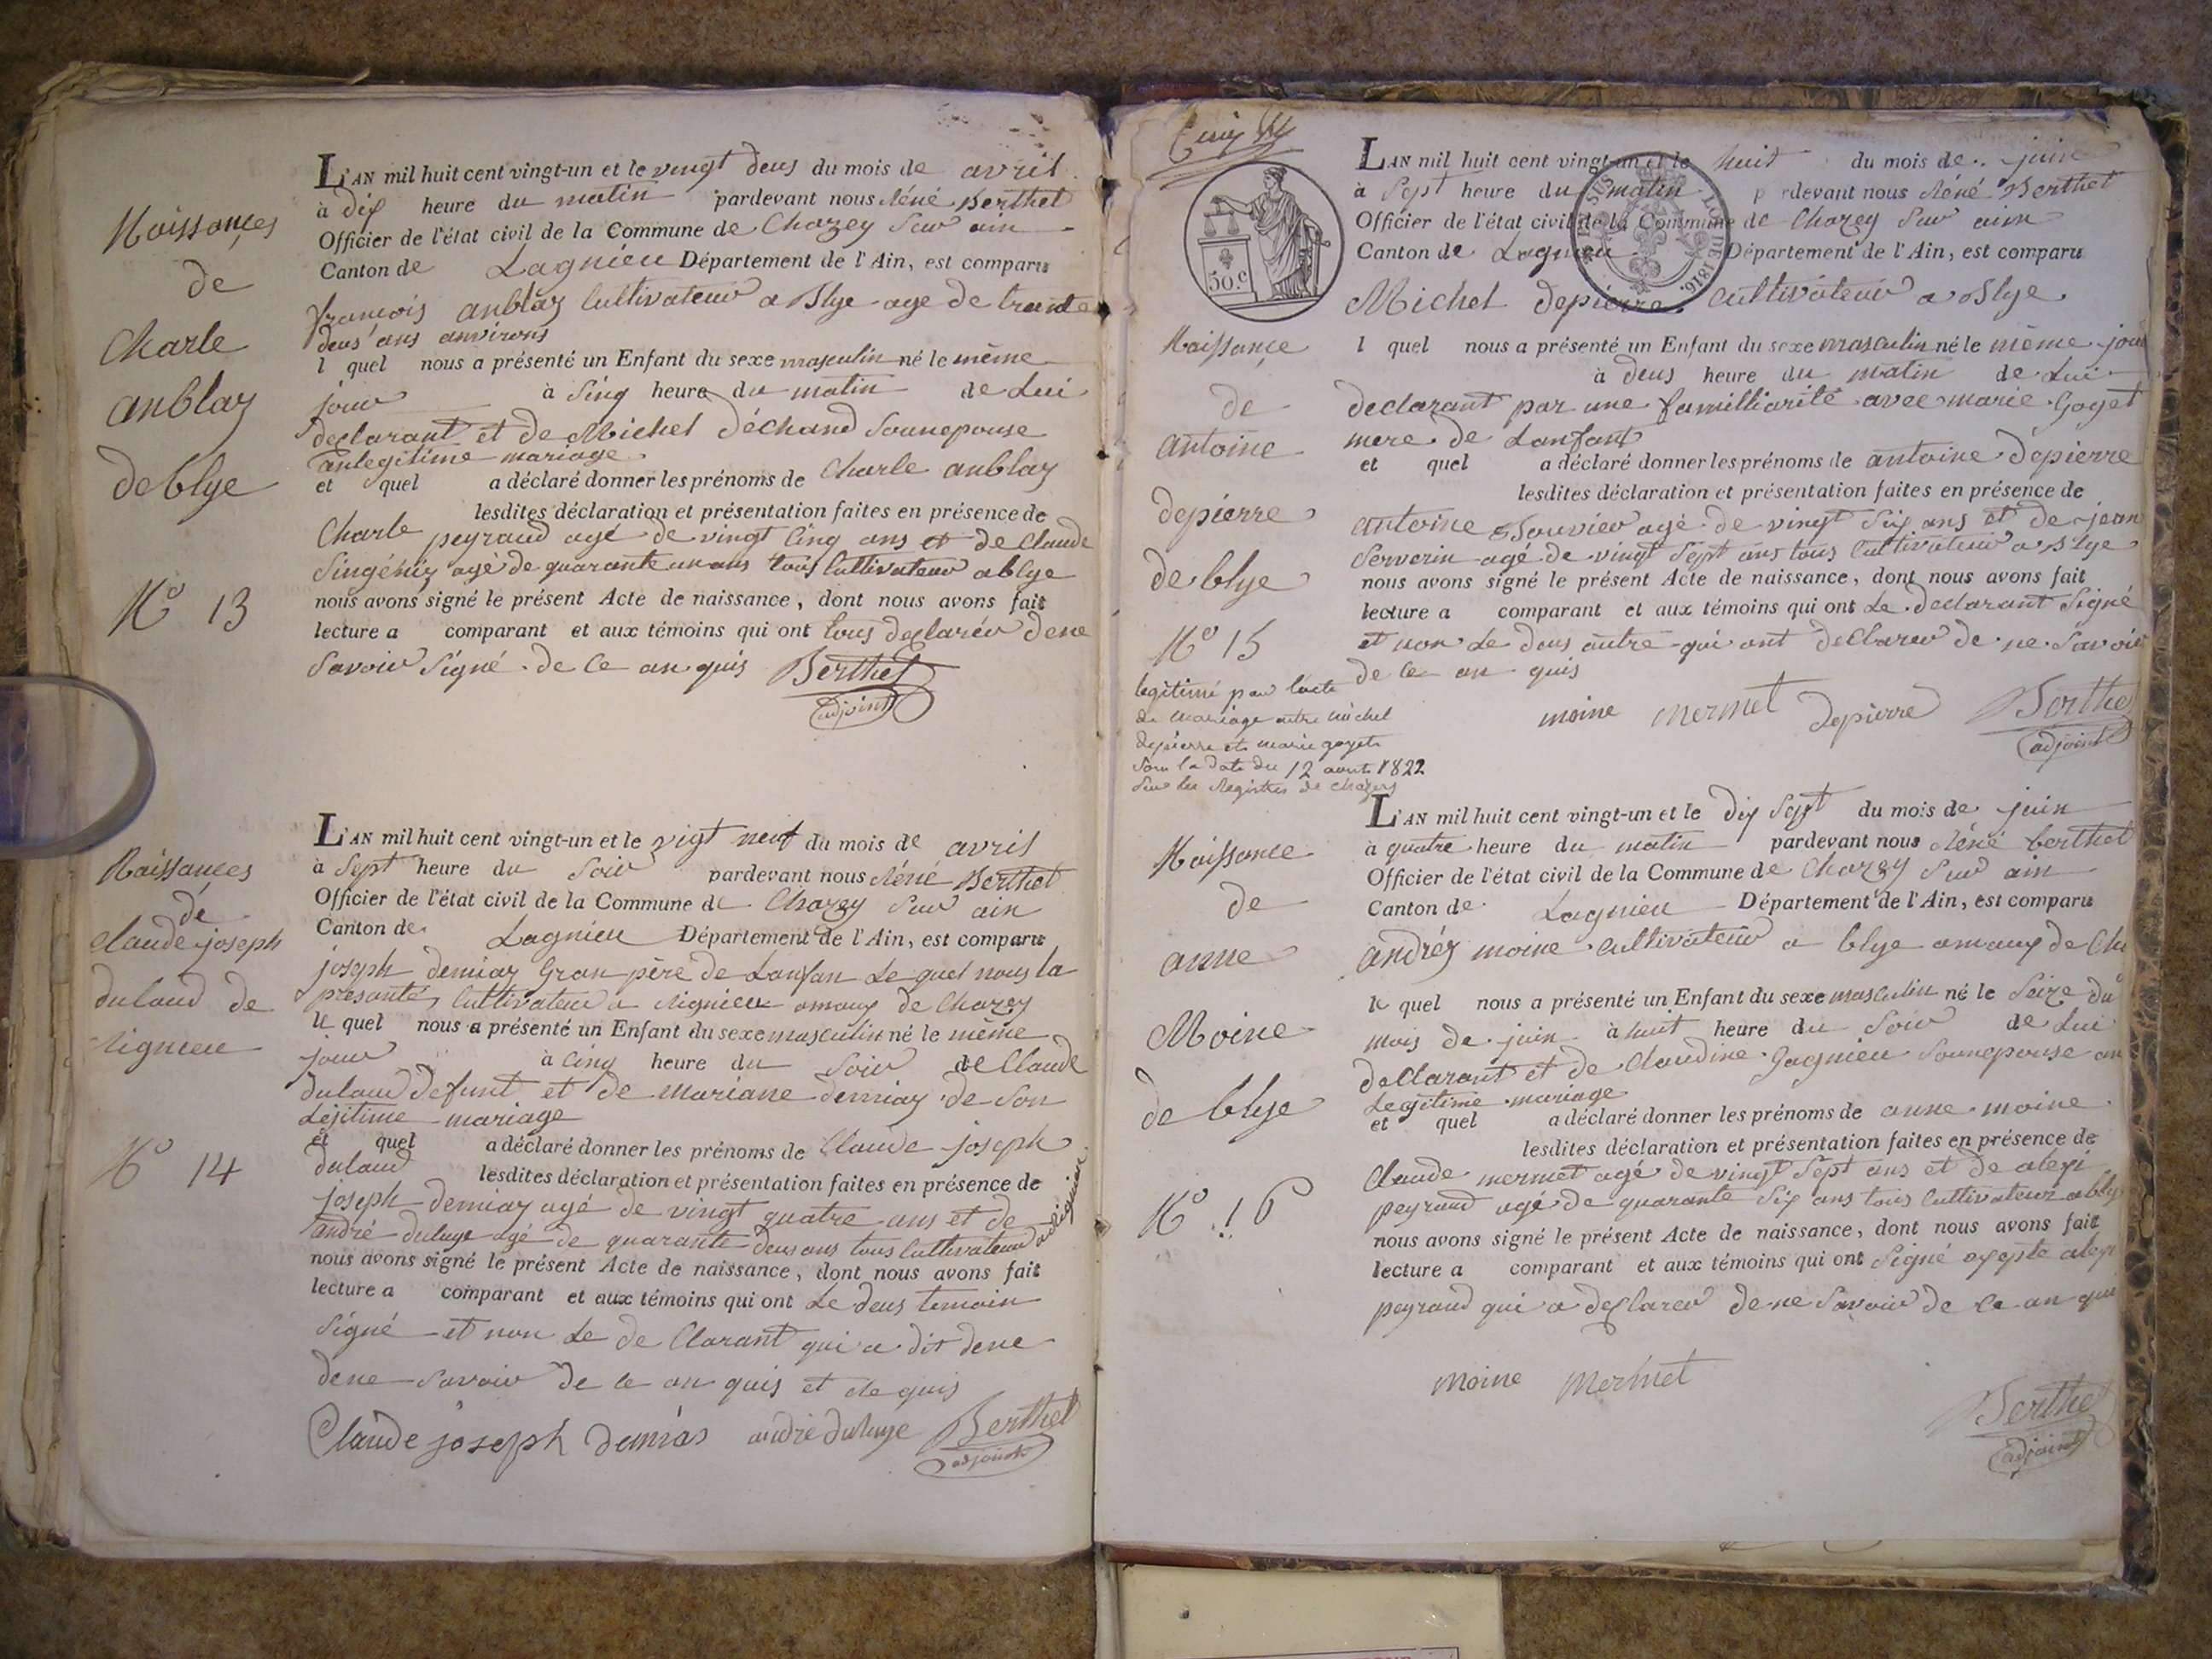 Naissances
de
Charle
anblay
de blye
N° 13
L'AN mil huit cent vingt-un et le vingt deus du mois de avril
à dix heure du matin pardevant nous Réné Berthet
Officier de l'état civil de la Commune de Chazey Sur ain
Canton de Lagnieu Département de l'Ain, est comparu
françois anblay Cultivateur a Blye age de trente
deus ans anvirons
l quel nous a présenté un Enfant du sexe masculin né le même
jour à Sinq heure du matin de Lui
declarant et de Michel déchand Sounepouse
anlegitime mariage
et quel a déclaré donner les prénoms de Charle anblay
lesdites déclaration et présentation faites en présence de
Charle peyraud agé de vingt Cinq ans et de Claude
agé de quarante un ans tous Cultivateur a blye
nous avons signé le présent Acte de naissance, dont nous avons fait
lecture a comparant et aux témoins qui ont tous declarér dene
Savoir Signé de Ce an quis Berthet
adjoint
Naissances
de
Claude joseph
dulaud de
rignieu
N° 14
L'AN mil huit cent vingt-un et le vigt neuf du mois de avril
à Sept heure du Soir pardevant nous Réné Berthet
Officier de l'état civil de la Commune de Chazey Sur ain
Canton de Lagnieu Département de l'Ain, est comparu
joseph demiay Gran père de Lanfan Le quel nous la
presanté, Cultivateur a Rignieu amaux de Chazey
le quel nous a présenté un Enfant du sexe masculin né le même
jour à Cinq heure du Soir de Claude
dulaud defunt et de Mariane demiay de Son
Lejitime mariage
et quel a déclaré donner les prénoms de Claude joseph
dulaud lesdites déclaration et présentation faites en présence de
joseph demiay agé de vingt quatre ans et de
andré duluye agé de quarante deus ans tous Cultivateur a rignieu
nous avons signé le présent Acte de naissance, dont nous avons fait
lecture a comparant et aux témoins qui ont Le deus temoin
Signé et non Le de Clarant qui a dit dene
dene Savoir de Ce an quis et de quis
Claude joseph demias andré duluye Berthet
adjoint
50.c
TIMBRE
LOI DE 1816.
Naissance
de
antoine
depierre
de blye
N° 15
legitimé par lacte
de mariage entre michel
depierre et marie goyet
Sous la date du 12 avril 1822
Sur les Registres de Chazey
L'AN mil huit cent vingt-un et le huit du mois de juin
à Sept heure du matin pardevant nous Réné Berthet
Officier de l'état civil de la Commune de Chazey Sur ain
Canton de Lagnieu Département de l'Ain, est comparu
Michel depierre Cultivateur a Blye
l quel nous a présenté un Enfant du sexe masculin né le même jour
à deus heure du matin de Lui
declarant par une familliarité avec marie Goyet
mere de Lanfant
et quel a déclaré donner les prénoms de antoine depierre
lesdites déclaration et présentation faites en présence de
antoine Bouvier agé de vingt Six ans et de jean
Serverin agé de vingt Sept ans tous Cultivateur a Blye
nous avons signé le présent Acte de naissance, dont nous avons fait
lecture a comparant et aux témoins qui ont Le declarant Signé
et non Le deus autre qui ont declarer de ne Savoir
de Ce an quis
moine mermet depierre Berthet
adjoint
Naissance
de
anne
Moine
de blye
N° 16
L'AN mil huit cent vingt-un et le dix Sept du mois de juin
à quatre heure du matin pardevant nous Réné berthet
Officier de l'état civil de la Commune de Chazey Sur ain
Canton de Lagnieu Département de l'Ain, est comparu
andréy moine Cultivateur a blye amaux de Cha
le quel nous a présenté un Enfant du sexe masculin né le Seize du
mois de juin à huit heure du Soir de Lui
deClarant et de Claudine Gagnieu Sounepouse an
Legitime mariage
et quel a déclaré donner les prénoms de anne moine
lesdites déclaration et présentation faites en présence de
Claude mermet agé de vingt Sept ans et de alexi
peyraud agé de quarante Six ans tous Cultivateur a blye
nous avons signé le présent Acte de naissance, dont nous avons fait
lecture a comparant et aux témoins qui ont Signé exepte alexi
peyraud qui a declarer de ne Savoir de Ce an quis
moine mermet
Berthet
adjoint